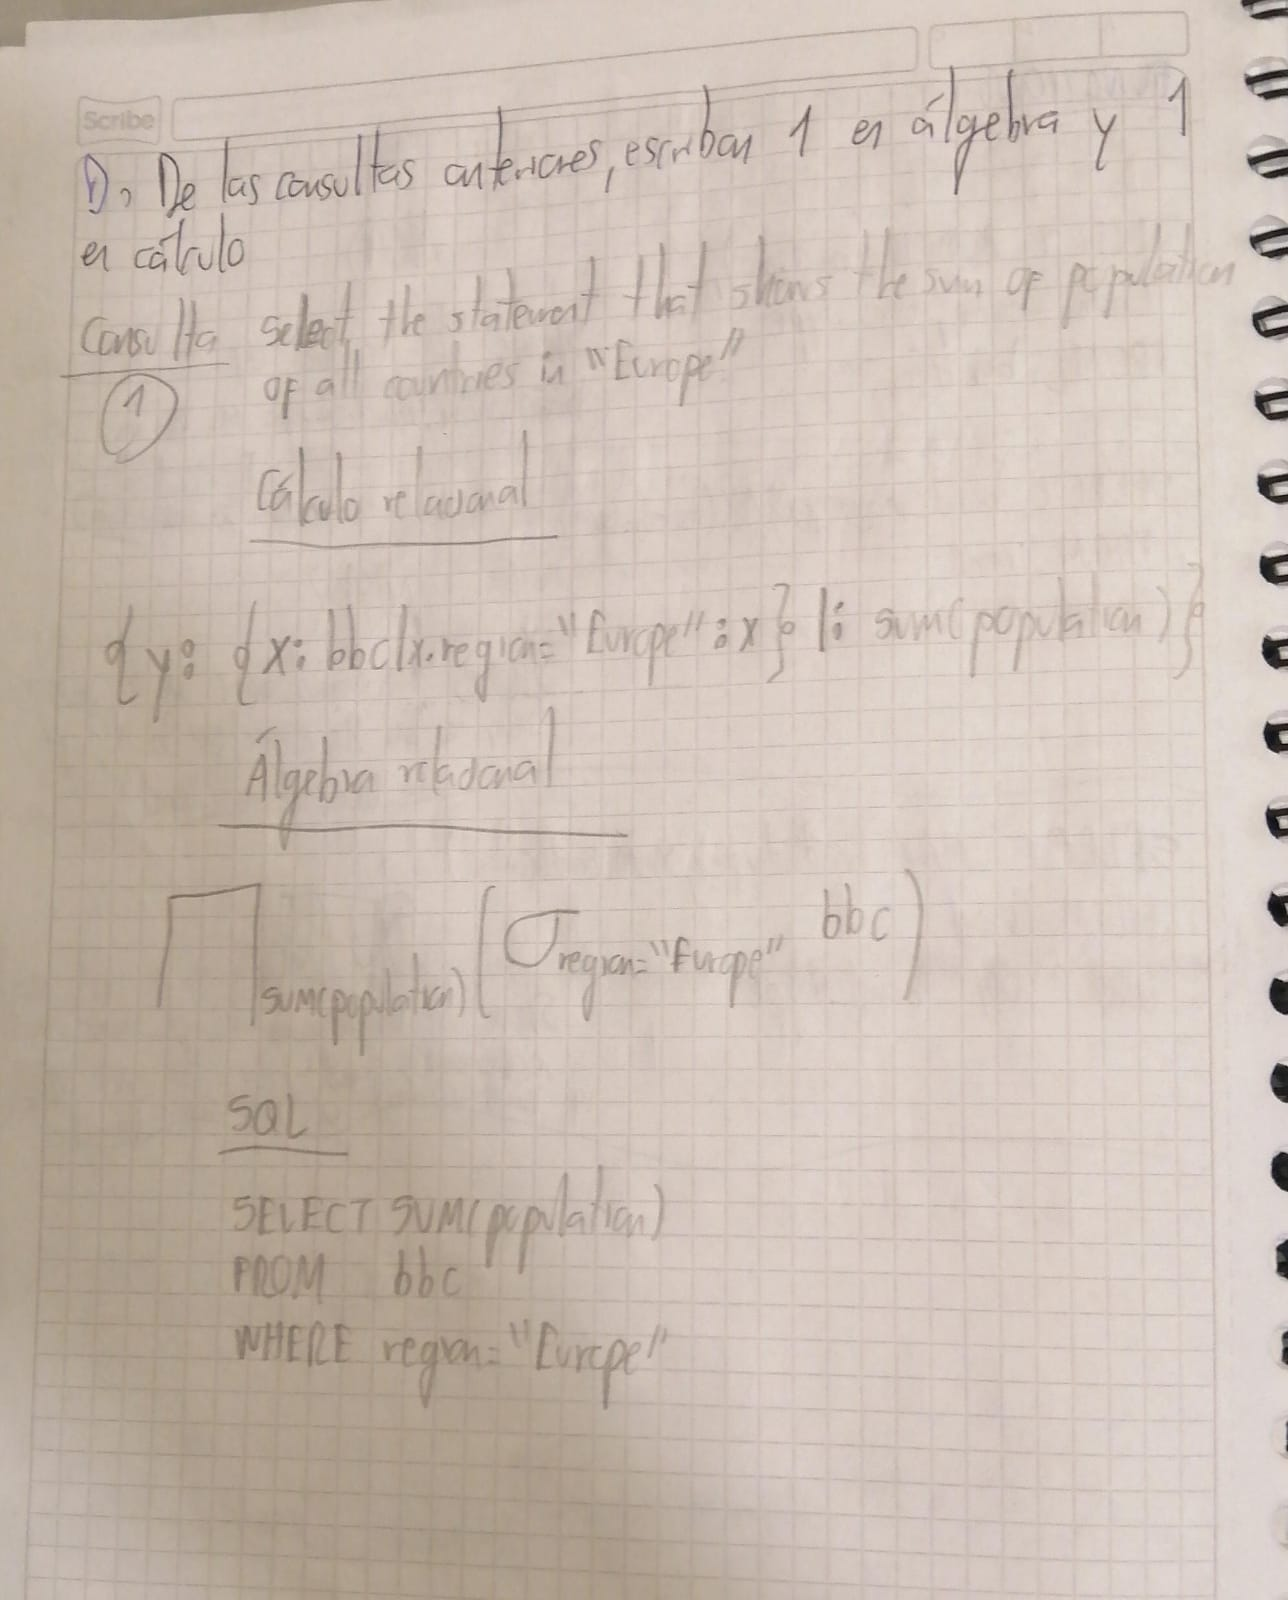 Scribe
D, De las consultas anteriores, escriban 1 en álgebra y 1
en cálculo
Consulta select the statement that shows the sum of population
1 of all countries in "Europe"
Cálculo relacional
{y: {x: bbc|x.region="Europe":x} |: sum(population)}
Álgebra relacional
∏ sum(population) (σ region="Europe" bbc)
SQL
SELECT SUM(population)
FROM bbc
WHERE region="Europe"